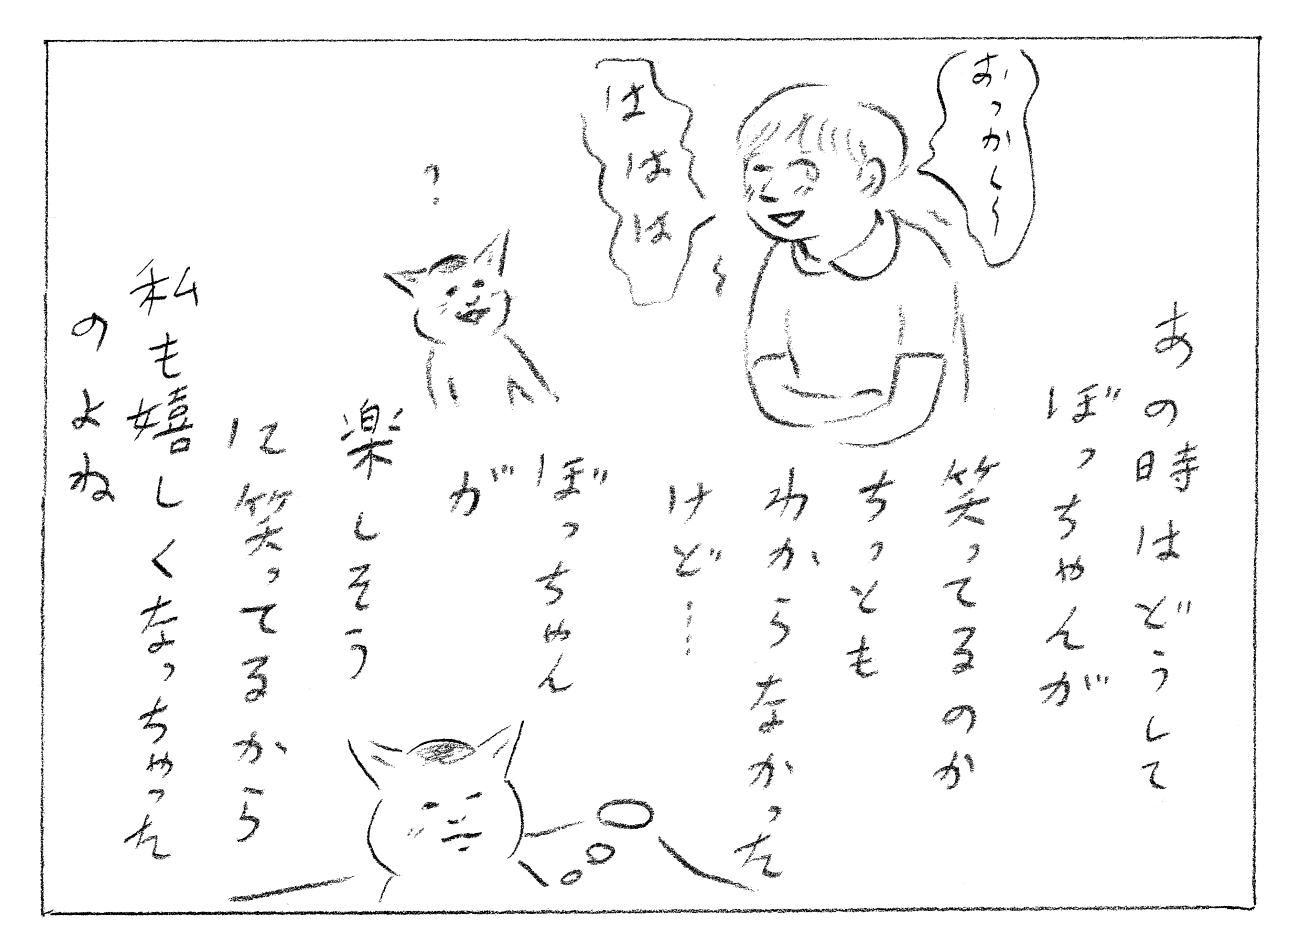 おっかく〜
はははは
あの時はどうして
ぼっちゃんが
笑ってるのか
ちっとも
わからなかった
けど…
ぼっちゃん
が
楽しそう
に笑ってるから
私も嬉しくなっちゃった
のよね